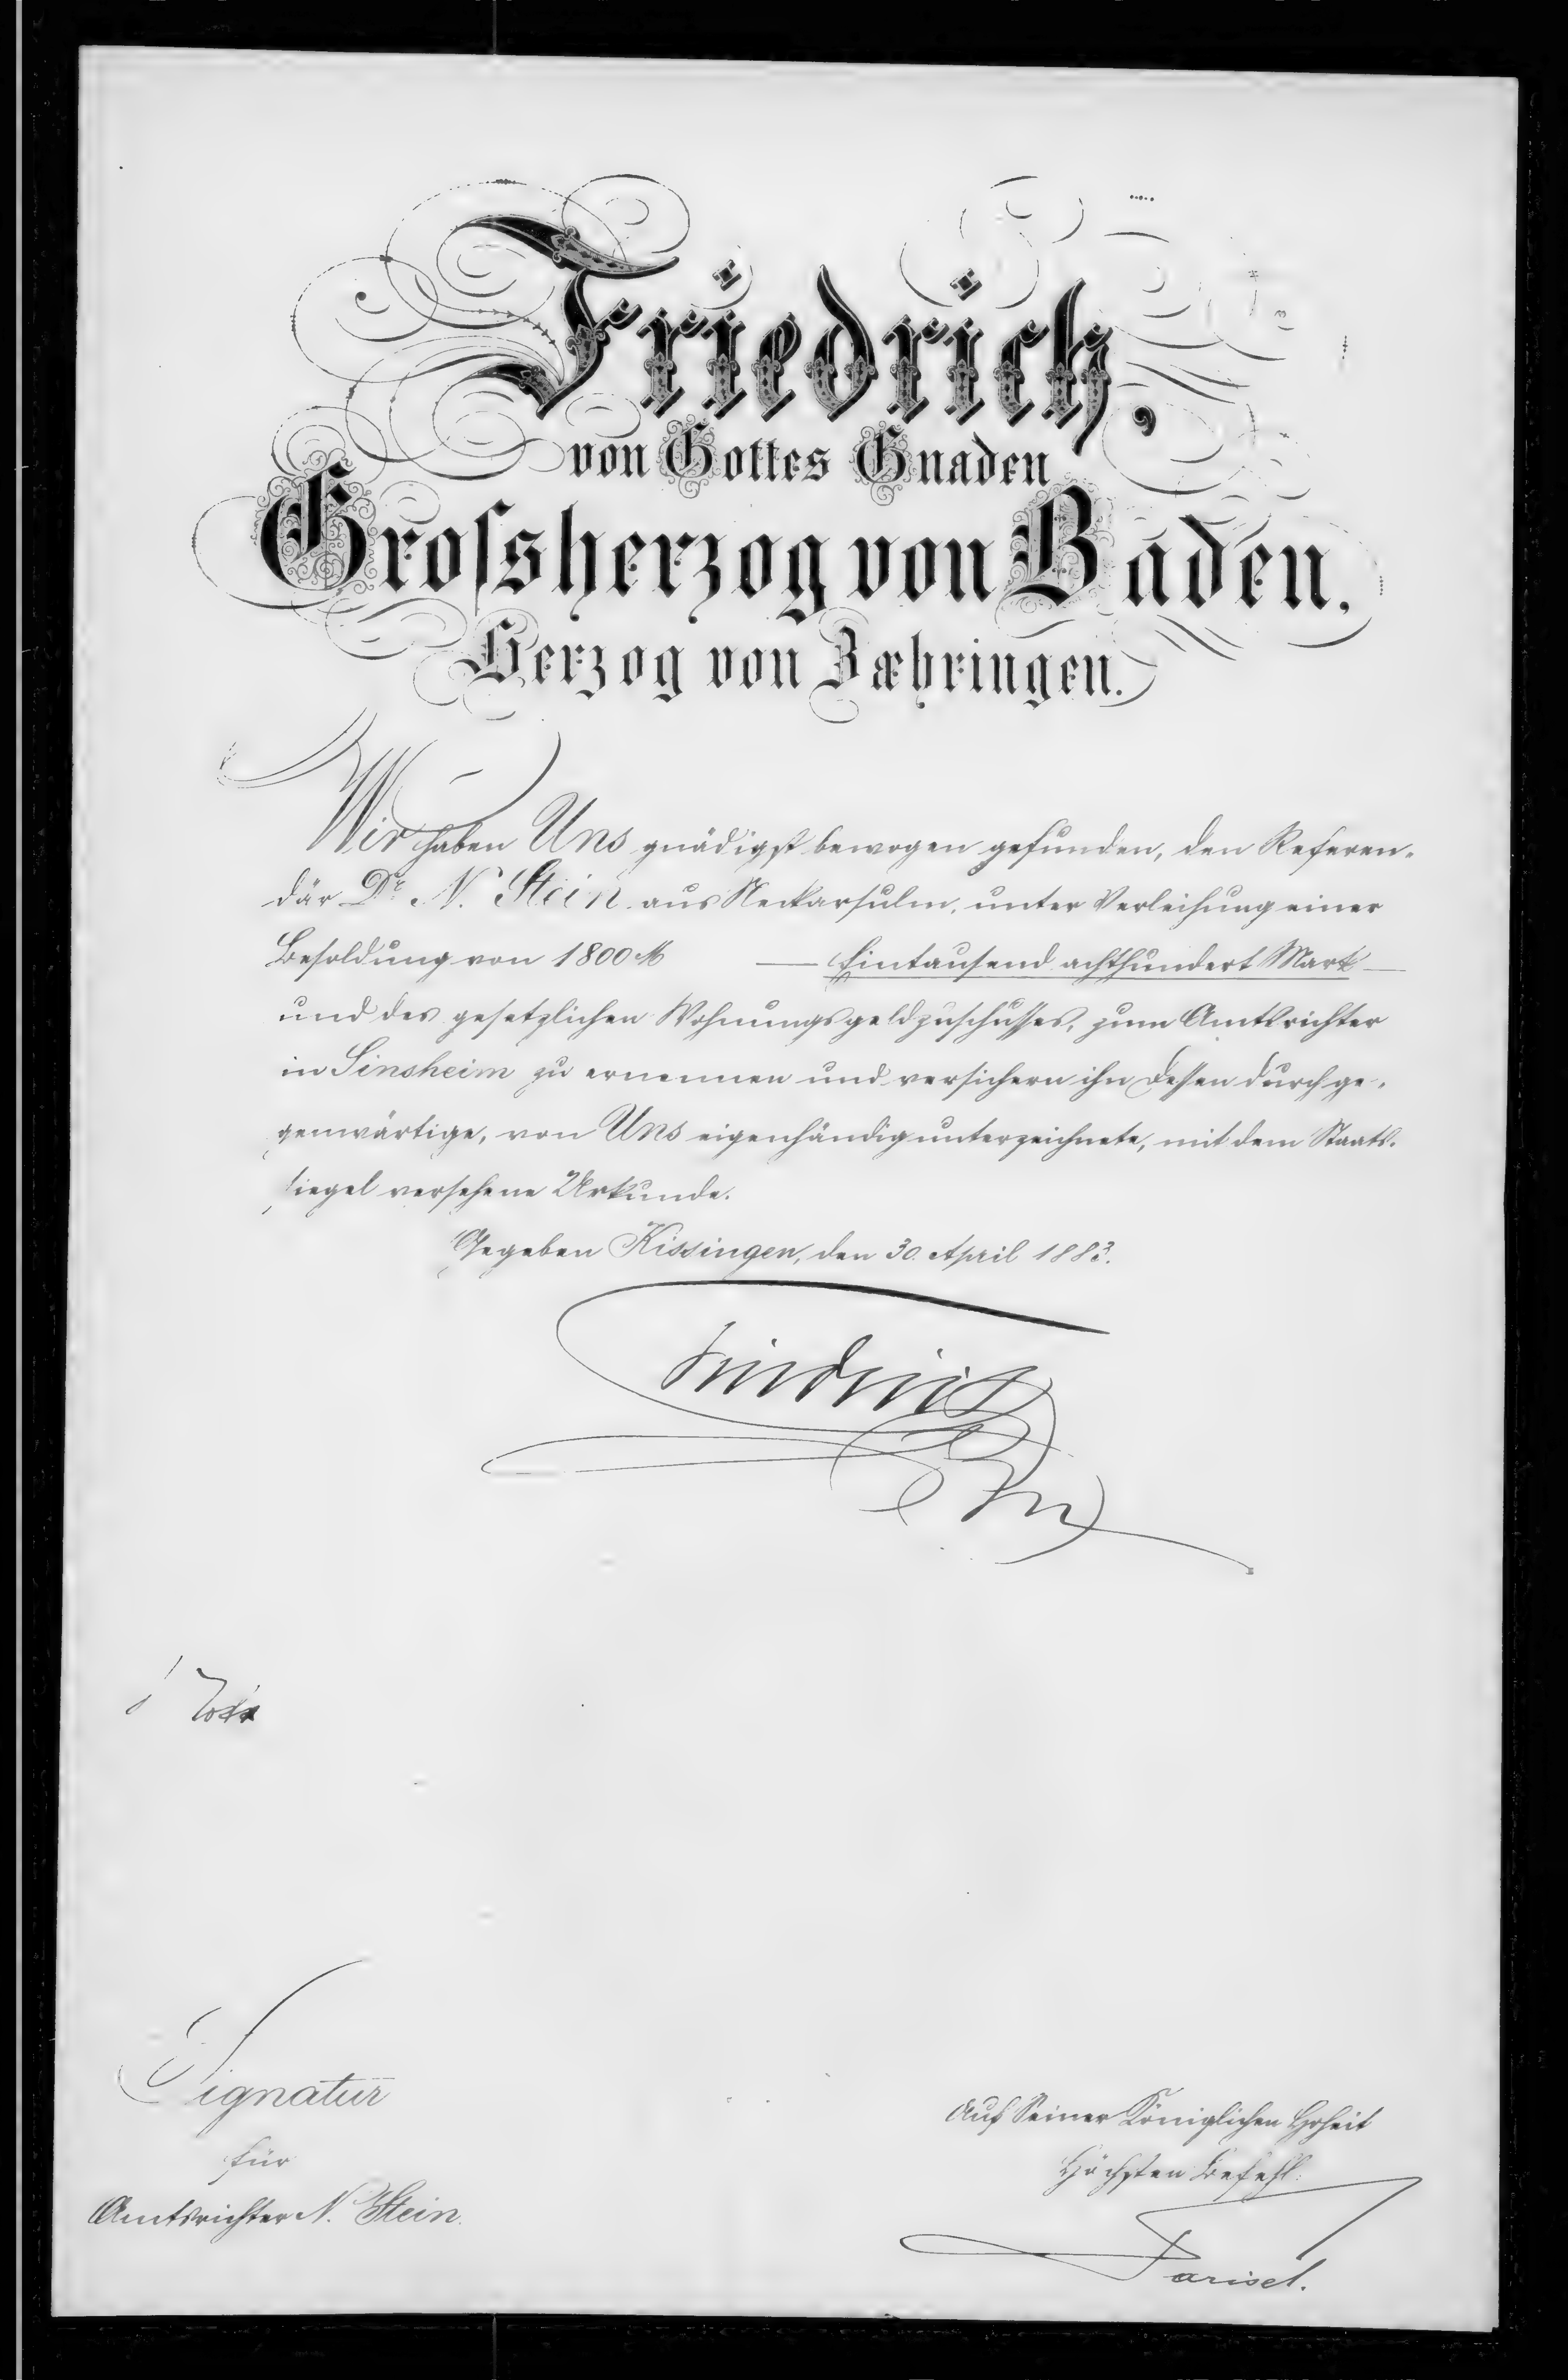 Friedrich,
von Gottes Gnaden
Grossherzog von Baden,
Herzog von Zæhringen.
Wir haben Uns gnädigst bewogen gefunden, den Referen-
där Dr. N. Stein aus Neckarsulm, unter Verleihung einer
Besoldung von 1800 M — Eintausend achthundert Mark —
und des gesetzlichen Wohnungsgeldzuschusses, zum Amtsrichter
in Sinsheim zu ernennen und versichern ihn dessen durch ge-
genwärtige, von Uns eigenhändig unterzeichnete, mit dem Staats-
siegel versehene Urkunde.
Gegeben Kissingen, den 30. April 1883.
Friedrich
Signatur
für
Amtsrichter N. Stein.
Auf Seiner Königlichen Hoheit
Höchsten Befehl:
Parisel.